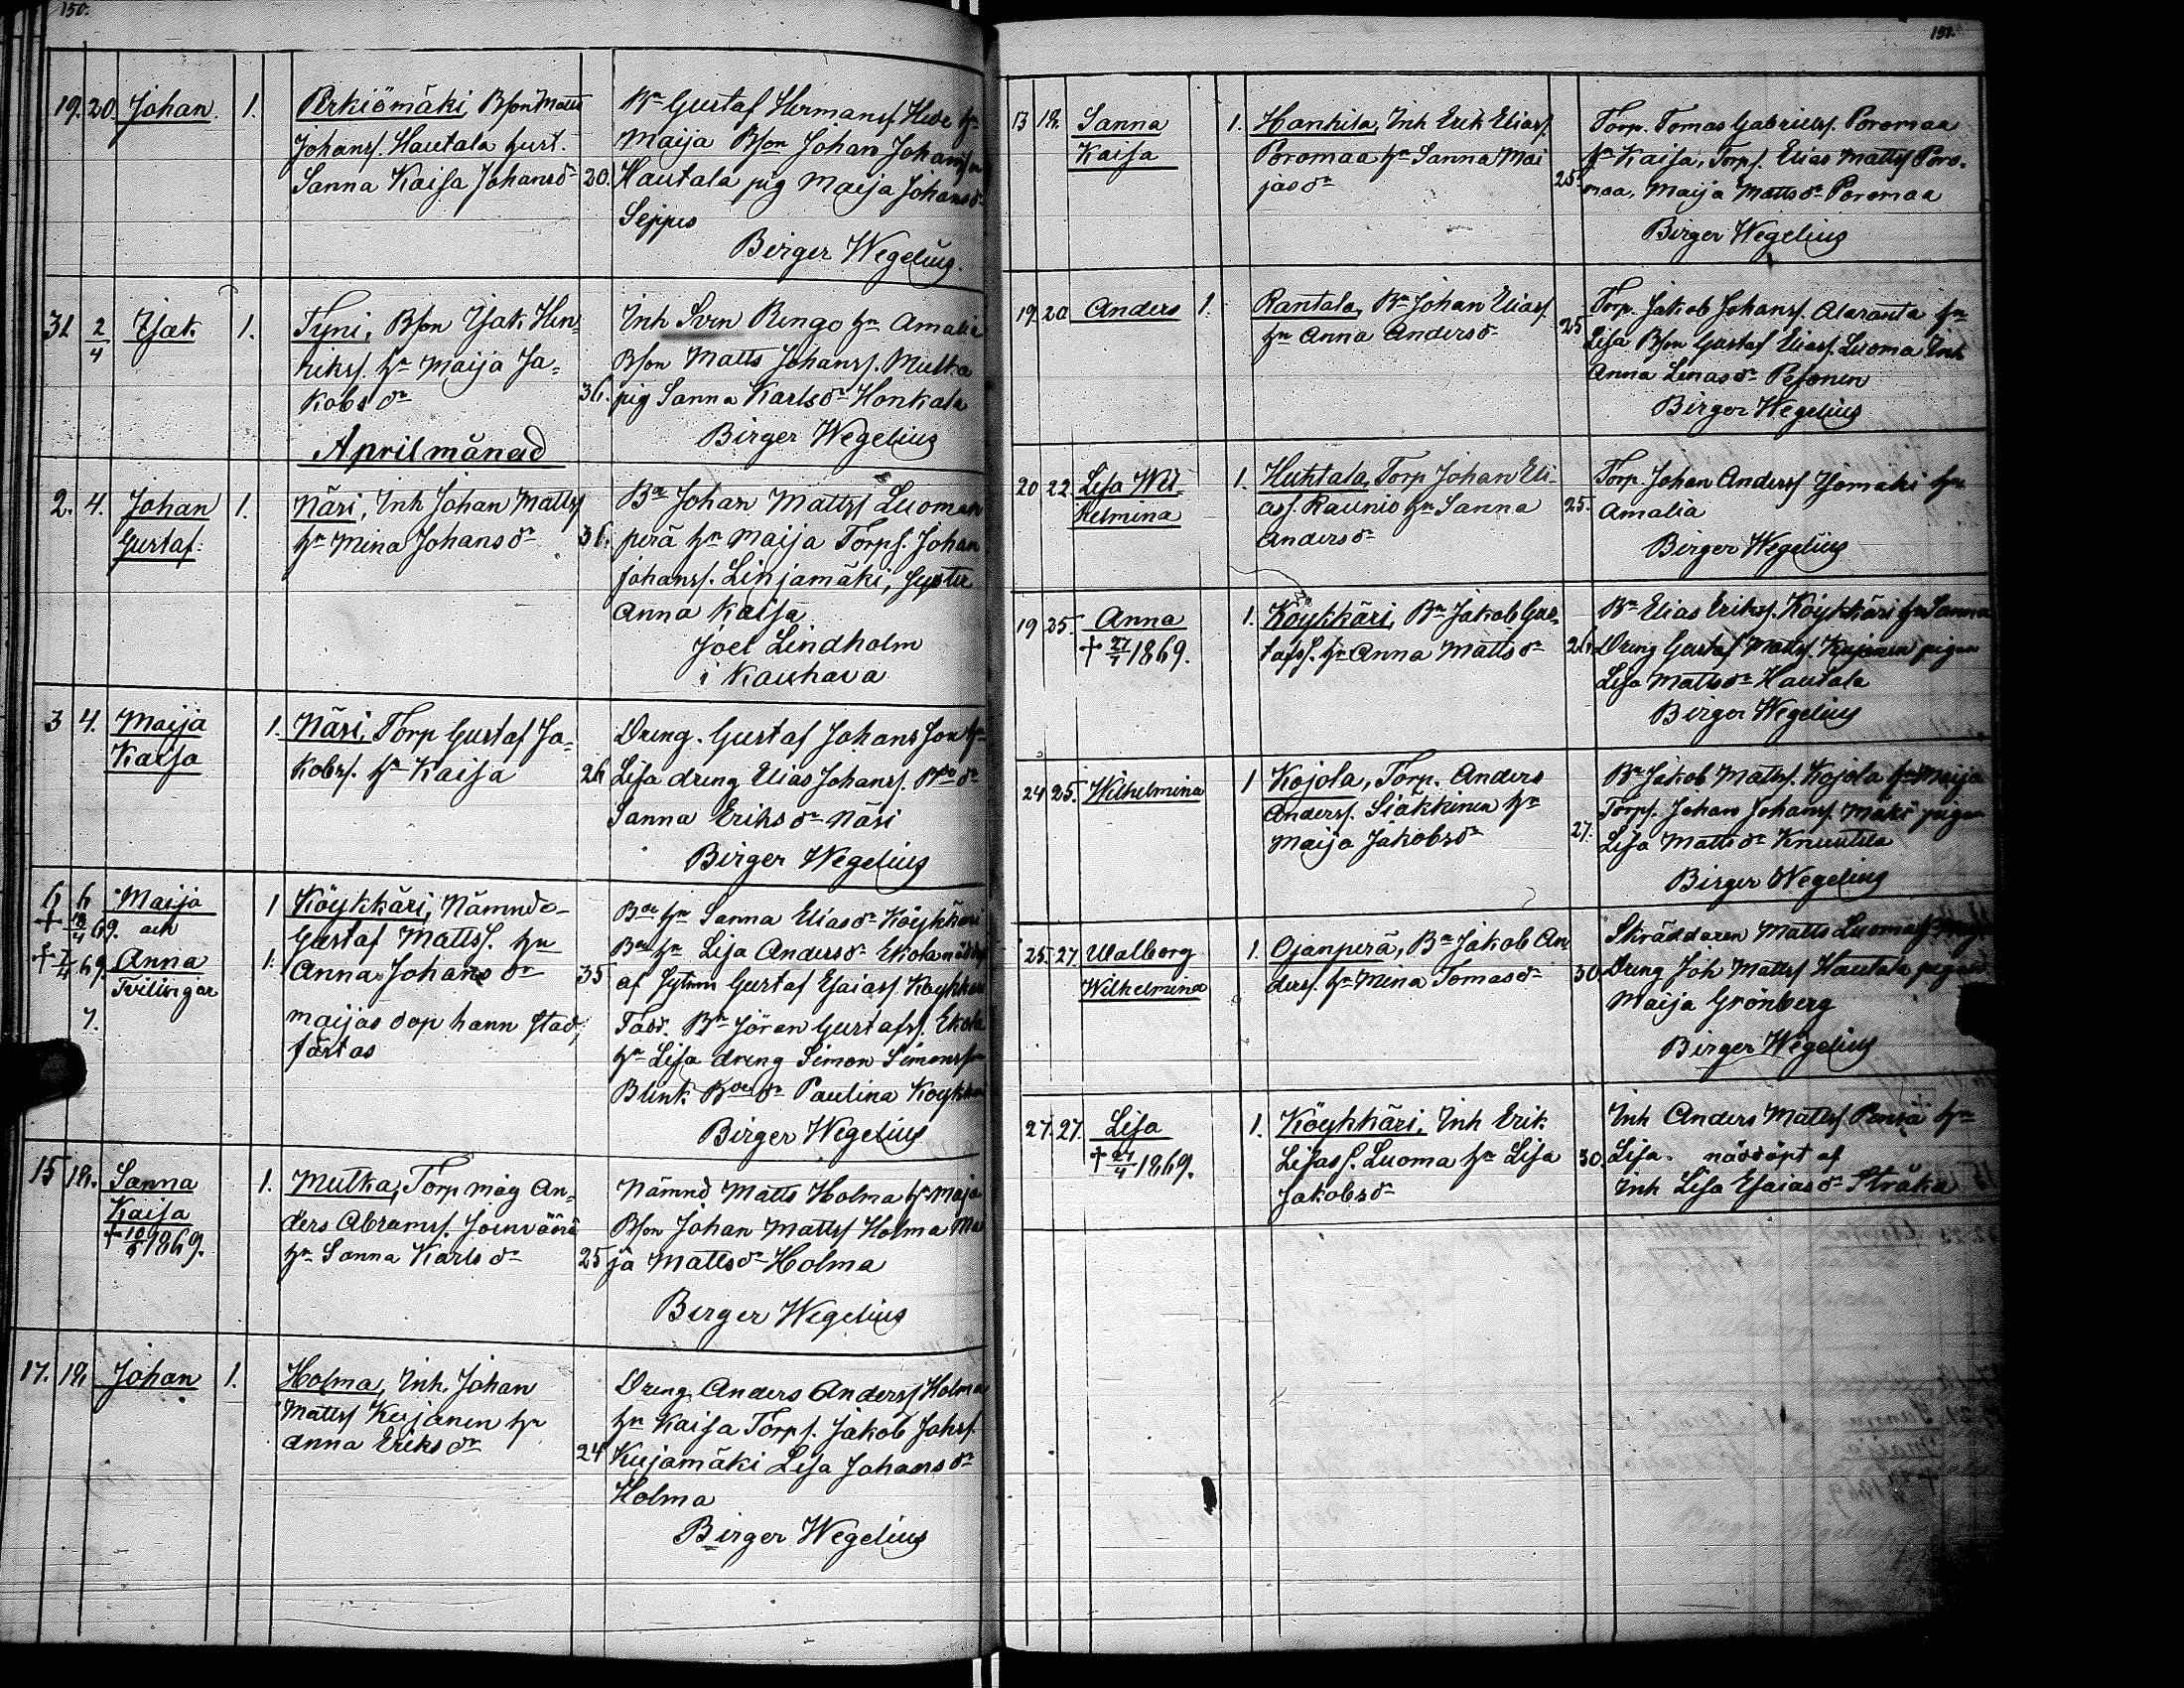 150.
19. 20. Johan. 1. Perkiömäki, Bson Matts
Johanss. Hautala hust.
Sanna Kaisa Johansdr 20.
Bn Gustaf Hermanss. Hede hn
Maija Bson Johan Johanss
Hautala pig Maija Johansdr
Seppus
Birger Wegelius.
31 2/4 Isak 1. Tyni, Bson Isak Hen-
rikss. hn Maija Ja-
kobsdr 36.
Inh Sven Ringo hn Amalia
Bson Matts Johanss. Mutka
pig Sanna Karlsdr Honkala
Birger Wegelius
April månad
2. 4. Johan
Gustaf. 1. Näri, Inh Johan Mattss
hn Mina Johansdr 36.
Bn Johan Mattss Luoman
perä hn Maija Torps. Johan
Johanss. Linjamäki, Syster
Anna Kaisa
Joel Lindholm
i Kauhava
3 4. Maija
Kaisa 1. Näsi, Torp Gustaf Ja-
kobss. hn Kaisa 26
Dreng. Gustaf Johansson hn
Lisa dreng Elias Johanss. Bdr
Sanna Eriksdr Näsi
Birger Wegelius
6 6 Maija 1
† 18/4 69. och
† 7/4 69. Anna 1.
Tvilingar
7.
Köykkäri, Nämndo-
Gustaf Mattss. hn
Anna Johansdr 35
Maijas dop hann stad-
fästas
Bn hn Sanna Eliasdr Köykkäri
Bn hn Lisa Andersdr Ekola nöddöpt
af Sytnin Gustaf Esaiass. Köykkäri
Fadd. Bn Jöran Gustafss. Ekola
hn Lisa dreng Simon Simonsson
Blink Bdr Paulina Köykkäri
Birger Wegelius
15 18. Sanna
Kaisa
† 10/5 1869. 1. Mutka, Torp måg An-
ders Abramss. Joenväärä
hn Sanna Karlsdr 25
Nämnd Matts Holma hn Maja
Bson Johan Mattss Holma Ma
ja Mattsdr Holma
Birger Wegelius
17. 18. Johan 1. Holma, Inh. Johan
Mattss Kujanen hn
Anna Eriksdr 24
Dreng Anders Anderss Holma
hn Kaisa Torps. Jakob Johss.
Kujamäki Lisa Johansdr
Holma
Birger Wegelius
151.
13 18. Sanna
Kaisa 1. Hanhila, Inh Erik Eliass.
Poromaa hn Sanna Mai
jasdr 25.
Torp. Tomas Gabrielss. Poromaa
hn Kaisa, Torps. Elias Mattss Poro-
maa, Maija Mattsdr Poromaa
Birger Wegelius
19. 20 Anders 1. Rantala, Bn Johan Eliass.
hn Anna Andersdr 25
Torp. Jakob Johanss. Alaranta hn
Lisa Bson Gustaf Eliass. Luoma Inh
Anna Linasdr Pesonen
Birger Wegelius
20 22. Lisa Wil-
helmina 1. Huhtala, Torp Johan Eli-
ass. Raunio hn Sanna
Andersdr 25.
Torp. Johan Anderss Isomäki hn
Amalia
Birger Wegelius
19 25. Anna
† 27/4 1869. 1. Köykkäri, Bn Jakob Gus-
tafss. hn Anna Mattsdr 26.
Bn Elias Erikss. Köykkäri hn Sanna
Dreng Gustaf Mattss. Kujanen pigan
Lisa Mattsdr Hautala
Birger Wegelius
24 25. Wilhelmina 1 Kojola, Torp. Anders
Anderss. Siäkkinen hn
Maija Jakobsdr 27.
Bn Jakob Mattss. Kojola hn Maija
Torps. Johan Johanss. Mäki pigan
Lisa Mattsdr Knuutila
Birger Wegelius
25. 27. Walborg
Wilhelmina 1. Ojanperä, Bn Jakob An
derss. hn Mina Tomasdr 30.
Skräddaren Matts Luoma
Dreng Joh Mattss Hautala pigan
Maija Grönberg
Birger Wegelius
27. 27. Lisa
† 27/4 1869. 1. Köykkäri, Inh Erik
Lisass. Luoma hn Lisa
Jakobsdr 30.
Inh Anders Mattss Penkä hn
Lisa. nöddöpt af
Inh Lisa Esaiasdr Stråka